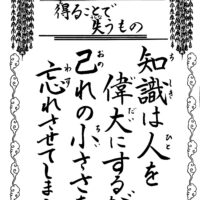 得ることで
失うもの
知識は人を
偉大にするが
己れの小ささを
忘れさせてしま